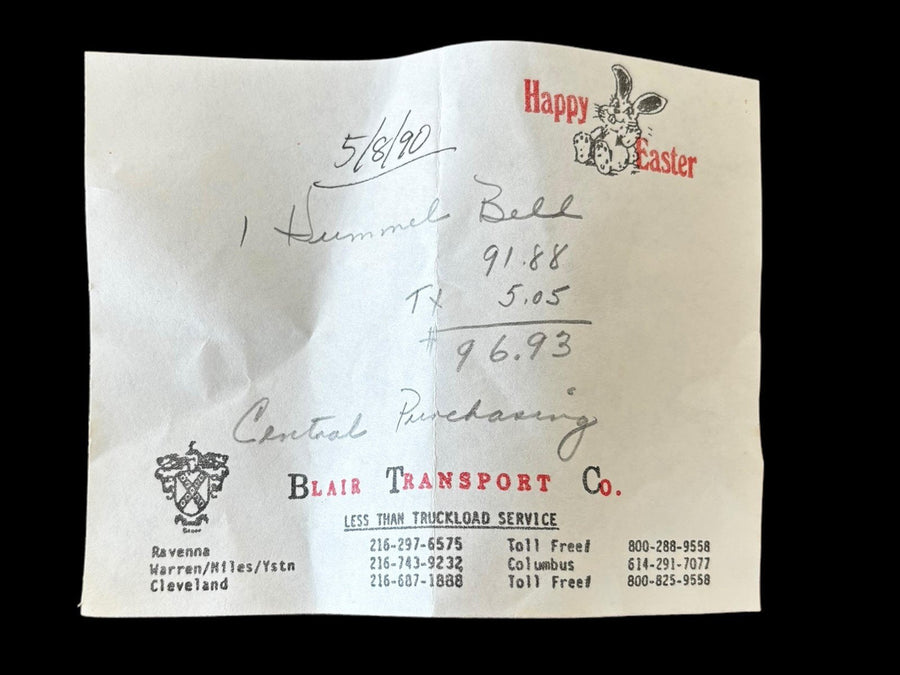 Happy
Easter
5/8/90
1 Hummel Bell
91.88
Tx 5.05
# 96.93
Central Purchasing
BLAIR TRANSPORT CO.
LESS THAN TRUCKLOAD SERVICE
Ravenna 216-297-6575 Toll Free# 800-288-9558
Warren/Niles/Ystn 216-743-9232 Columbus 614-291-7077
Cleveland 216-687-1888 Toll Free# 800-825-9558